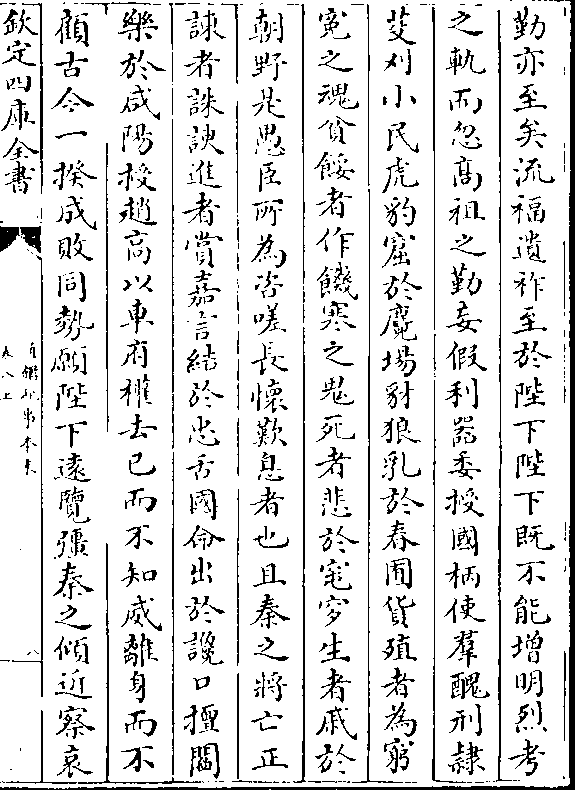 勤亦至矣流福遺祚至於陛下陛下既不能增明烈考
之軌而忽髙祖之勤妄假利器委授國柄使羣醜刑隷
芟刈小民虎豹窟於麑場豺狼乳於春囿貨殖者為窮
寃之魂貧餒者作饑寒之鬼死者悲於窀穸生者戚於
朝野是愚臣所為咨嗟長懷歎息者也且秦之將亡正
諫者誅諛進者賞嘉言結於忠舌國命出於讒口擅閻
樂於咸陽授趙高以車府權去已而不知威離身而不
顧古今一揆成敗同勢願陛下遠覽彊秦之傾近察哀
欽定四庫全書
通鑑紀事本末
卷八上
八